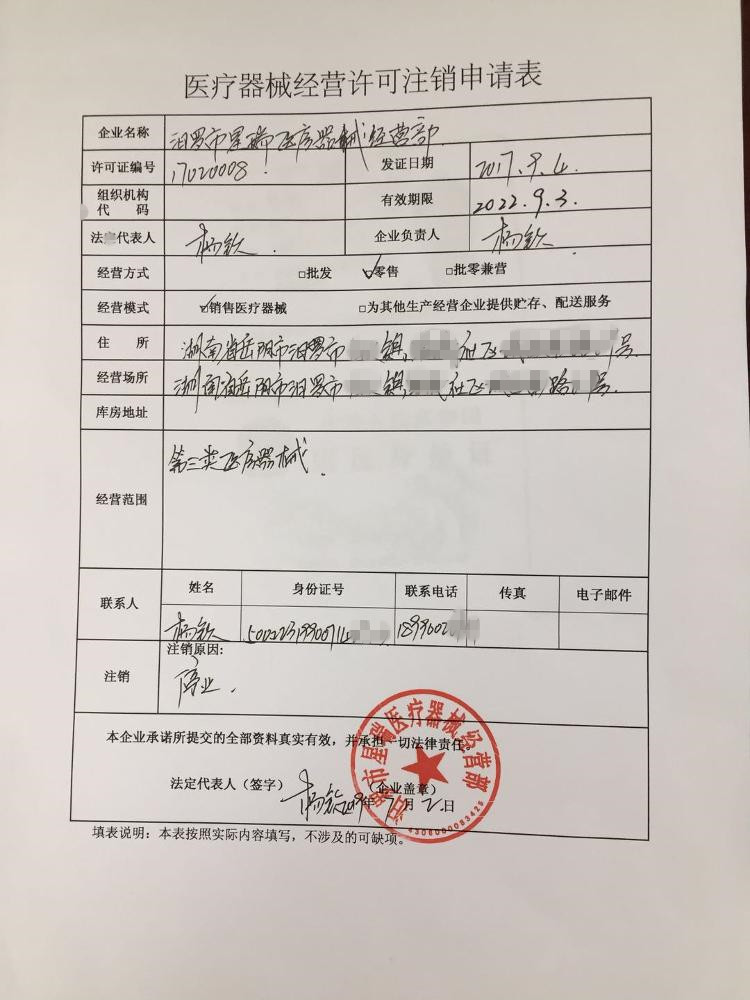 医疗器械经营许可注销申请表
企业名称 汨罗市星瑞医疗器械经营部
许可证编号 17020008. 发证日期 2017.9.4.
组织机构代码 有效期限 2022.9.3.
法定代表人 杨钦. 企业负责人 杨钦
经营方式 □批发 ☑零售 □批零兼营
经营模式 ☑销售医疗器械 □为其他生产经营企业提供贮存、配送服务
住 所 湖南省岳阳市汨罗市 镇 社区 号
经营场所 湖南省岳阳市汨罗市 镇 社区 路 号.
库房地址
经营范围 第三类医疗器械.
联系人 姓名 身份证号 联系电话 传真 电子邮件
杨钦
注销 注销原因:
停业.
本企业承诺所提交的全部资料真实有效，并承担一切法律责任。
法定代表人（签字） 杨钦 （企业盖章）
年 7月2日
汨罗市星瑞医疗器械经营部
4306000083425
填表说明：本表按照实际内容填写，不涉及的可缺项。